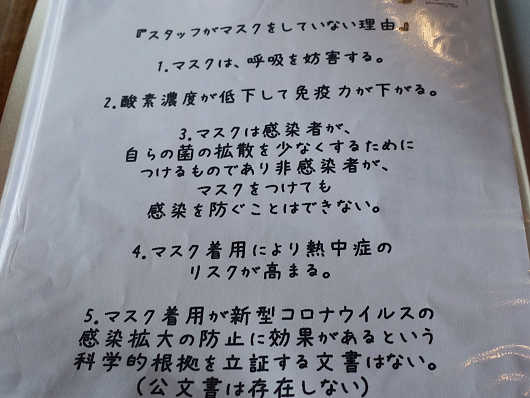 『スタッフがマスクをしていない理由』
1.マスクは、呼吸を妨害する。
2.酸素濃度が低下して免疫力が下がる。
3.マスクは感染者が、
自らの菌の拡散を少なくするために
つけるものであり非感染者が、
マスクをつけても
感染を防ぐことはできない。
4.マスク着用により熱中症の
リスクが高まる。
5.マスク着用が新型コロナウイルスの
感染拡大の防止に効果があるという
科学的根拠を立証する文書はない。
(公文書は存在しない)